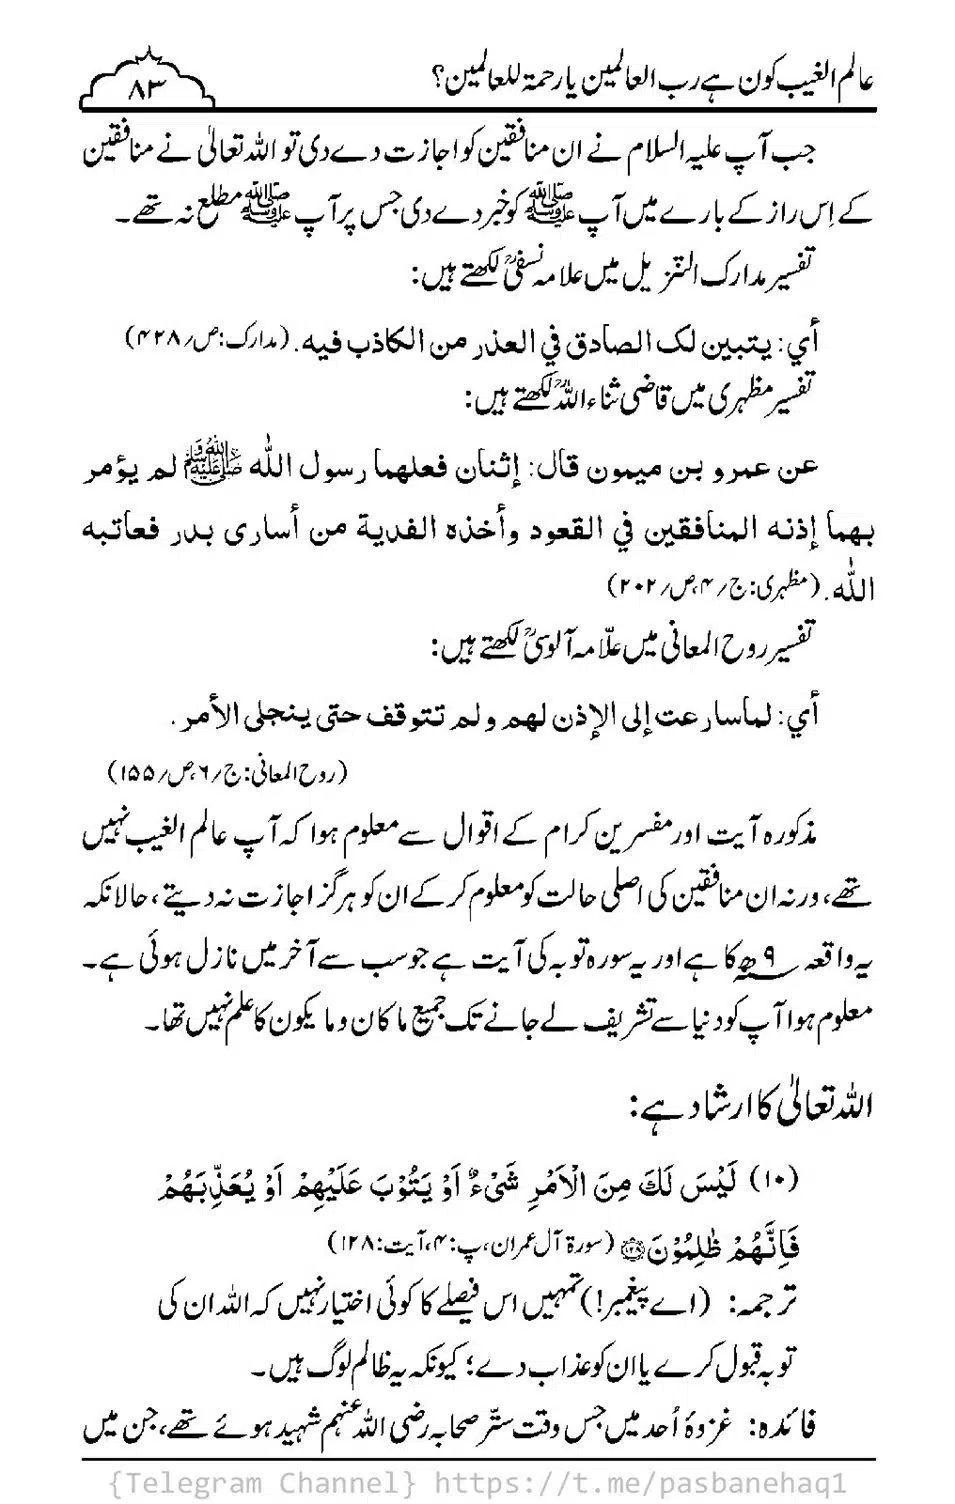 عالم الغیب کون ہے رب العالمین یا رحمۃ للعالمین؟
۸۳
جب آپ علیہ السلام نے ان منافقین کو اجازت دے دی تو اللہ تعالیٰ نے منافقین
کے اِس راز کے بارے میں آپ ﷺ کو خبر دے دی جس پر آپ ﷺ مطلع نہ تھے۔
تفسیر مدارک التنزیل میں علامہ نسفیؒ لکھتے ہیں:
أي: یتبین لک الصادق في العذر من الکاذب فیه. (مدارک:ص؍۴۲۸)
تفسیر مظہری میں قاضی ثناء اللہؒ لکھتے ہیں:
عن عمرو بن میمون قال: إثنان فعلهما رسول الله ﷺ لم یؤمر
بهما إذنه المنافقین في القعود وأخذه الفدیة من أساری بدر فعاتبه
الله. (مظہری:ج؍۴،ص؍۲۰۲)
تفسیر روح المعانی میں علاّمہ آلوسیؒ لکھتے ہیں:
أي: لما سارعت إلی الإذن لهم ولم تتوقف حتی ینجلی الأمر.
(روح المعانی:ج؍۶،ص؍۱۵۵)
مذکورہ آیت اور مفسرین کرام کے اقوال سے معلوم ہوا کہ آپ عالم الغیب نہیں
تھے، ورنہ ان منافقین کی اصلی حالت کو معلوم کر کے ان کو ہرگز اجازت نہ دیتے، حالانکہ
یہ واقعہ ۹ھ کا ہے اور یہ سورہ توبہ کی آیت ہے جو سب سے آخر میں نازل ہوئی ہے۔
معلوم ہوا آپ کو دنیا سے تشریف لے جانے تک جمیع ما کان وما یکون کا علم نہیں تھا۔
اللہ تعالیٰ کا ارشاد ہے:
(۱۰) لَیْسَ لَكَ مِنَ الْاَمْرِ شَیْءٌ اَوْ یَتُوْبَ عَلَیْهِمْ اَوْ یُعَذِّبَهُمْ
فَاِنَّهُمْ ظٰلِمُوْنَ ۝۱۲۸ (سورۃ آل عمران،پ:۴،آیت:۱۲۸)
ترجمہ: (اے پیغمبر!) تمہیں اس فیصلے کا کوئی اختیار نہیں کہ اللہ ان کی
توبہ قبول کرے یا ان کو عذاب دے؛ کیونکہ یہ ظالم لوگ ہیں۔
فائدہ: غزوۂ اُحد میں جس وقت ستّر صحابہ رضی اللہ عنہم شہید ہوئے تھے، جن میں
{Telegram Channel} https://t.me/pasbanehaq1